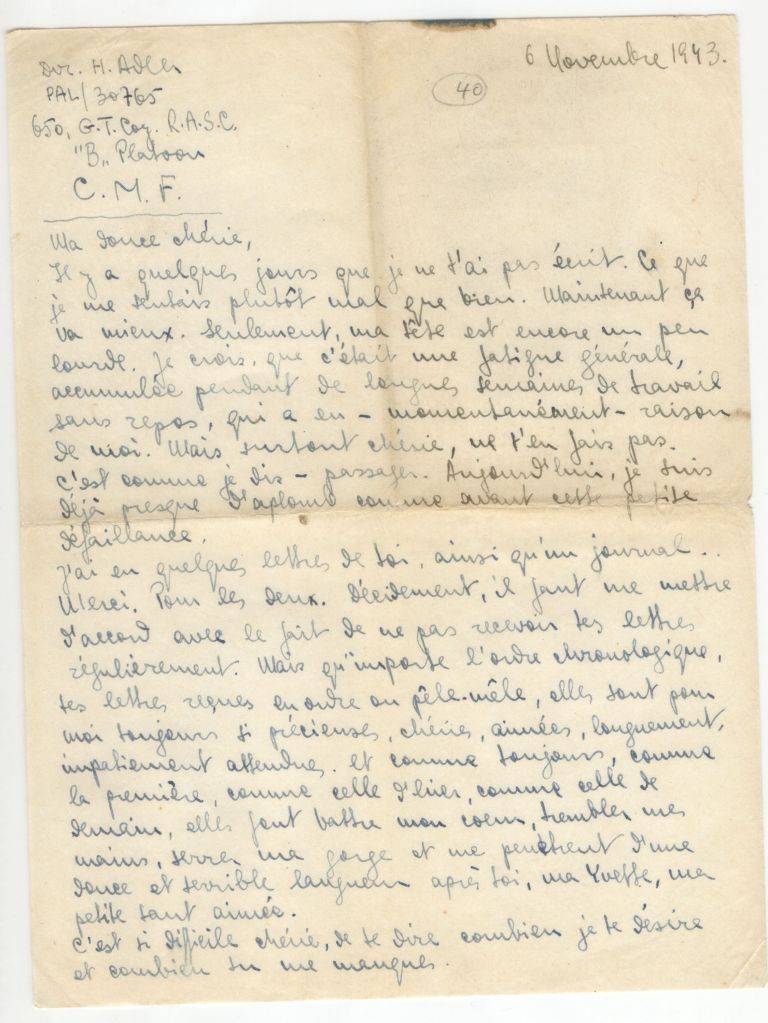 6 Novembre 1943.
40
Dvr. H. Adler
PAL/30765
650, G.T. Coy. R.A.S.C.
"B" Platoon
C. M. F.
Ma douce chérie,
Il y a quelques jours que je ne t'ai pas écrit. Ce que
je me sentais plutôt mal que bien. Maintenant ça
va mieux. Seulement, ma tête est encore un peu
lourde. Je crois, que c'était une fatigue générale,
accumulée pendant de longues semaines de travail
sans repos, qui a eu – momentanément – raison
de moi. Mais surtout chérie, ne t'en fais pas.
C'est comme je dis – passager. Aujourd'hui, je suis
déjà presque d'aplomb comme avant cette petite
défaillance.
J'ai eu quelques lettres de toi, ainsi qu'un journal..
Merci. Pour les deux. Décidement, il faut me mettre
d'accord avec le fait de ne pas recevoir tes lettres
régulièrement. Mais qu'importe l'ordre chronologique,
tes lettres reçues en ordre ou pêle-mêle, elles sont pour
moi toujours si précieuses, chéries, aimées, longuement,
impatiement attendues. Et comme toujours, comme
la première, comme celle d'hier, comme celle de
demain, elles font battre mon coeur, trembler mes
mains, serrer ma gorge et me penètrent d'une
douce et terrible langueur après toi, ma Yvette, ma
petite tant aimée.
C'est si difficile chérie, de te dire combien je te désire
et combien tu me manques.